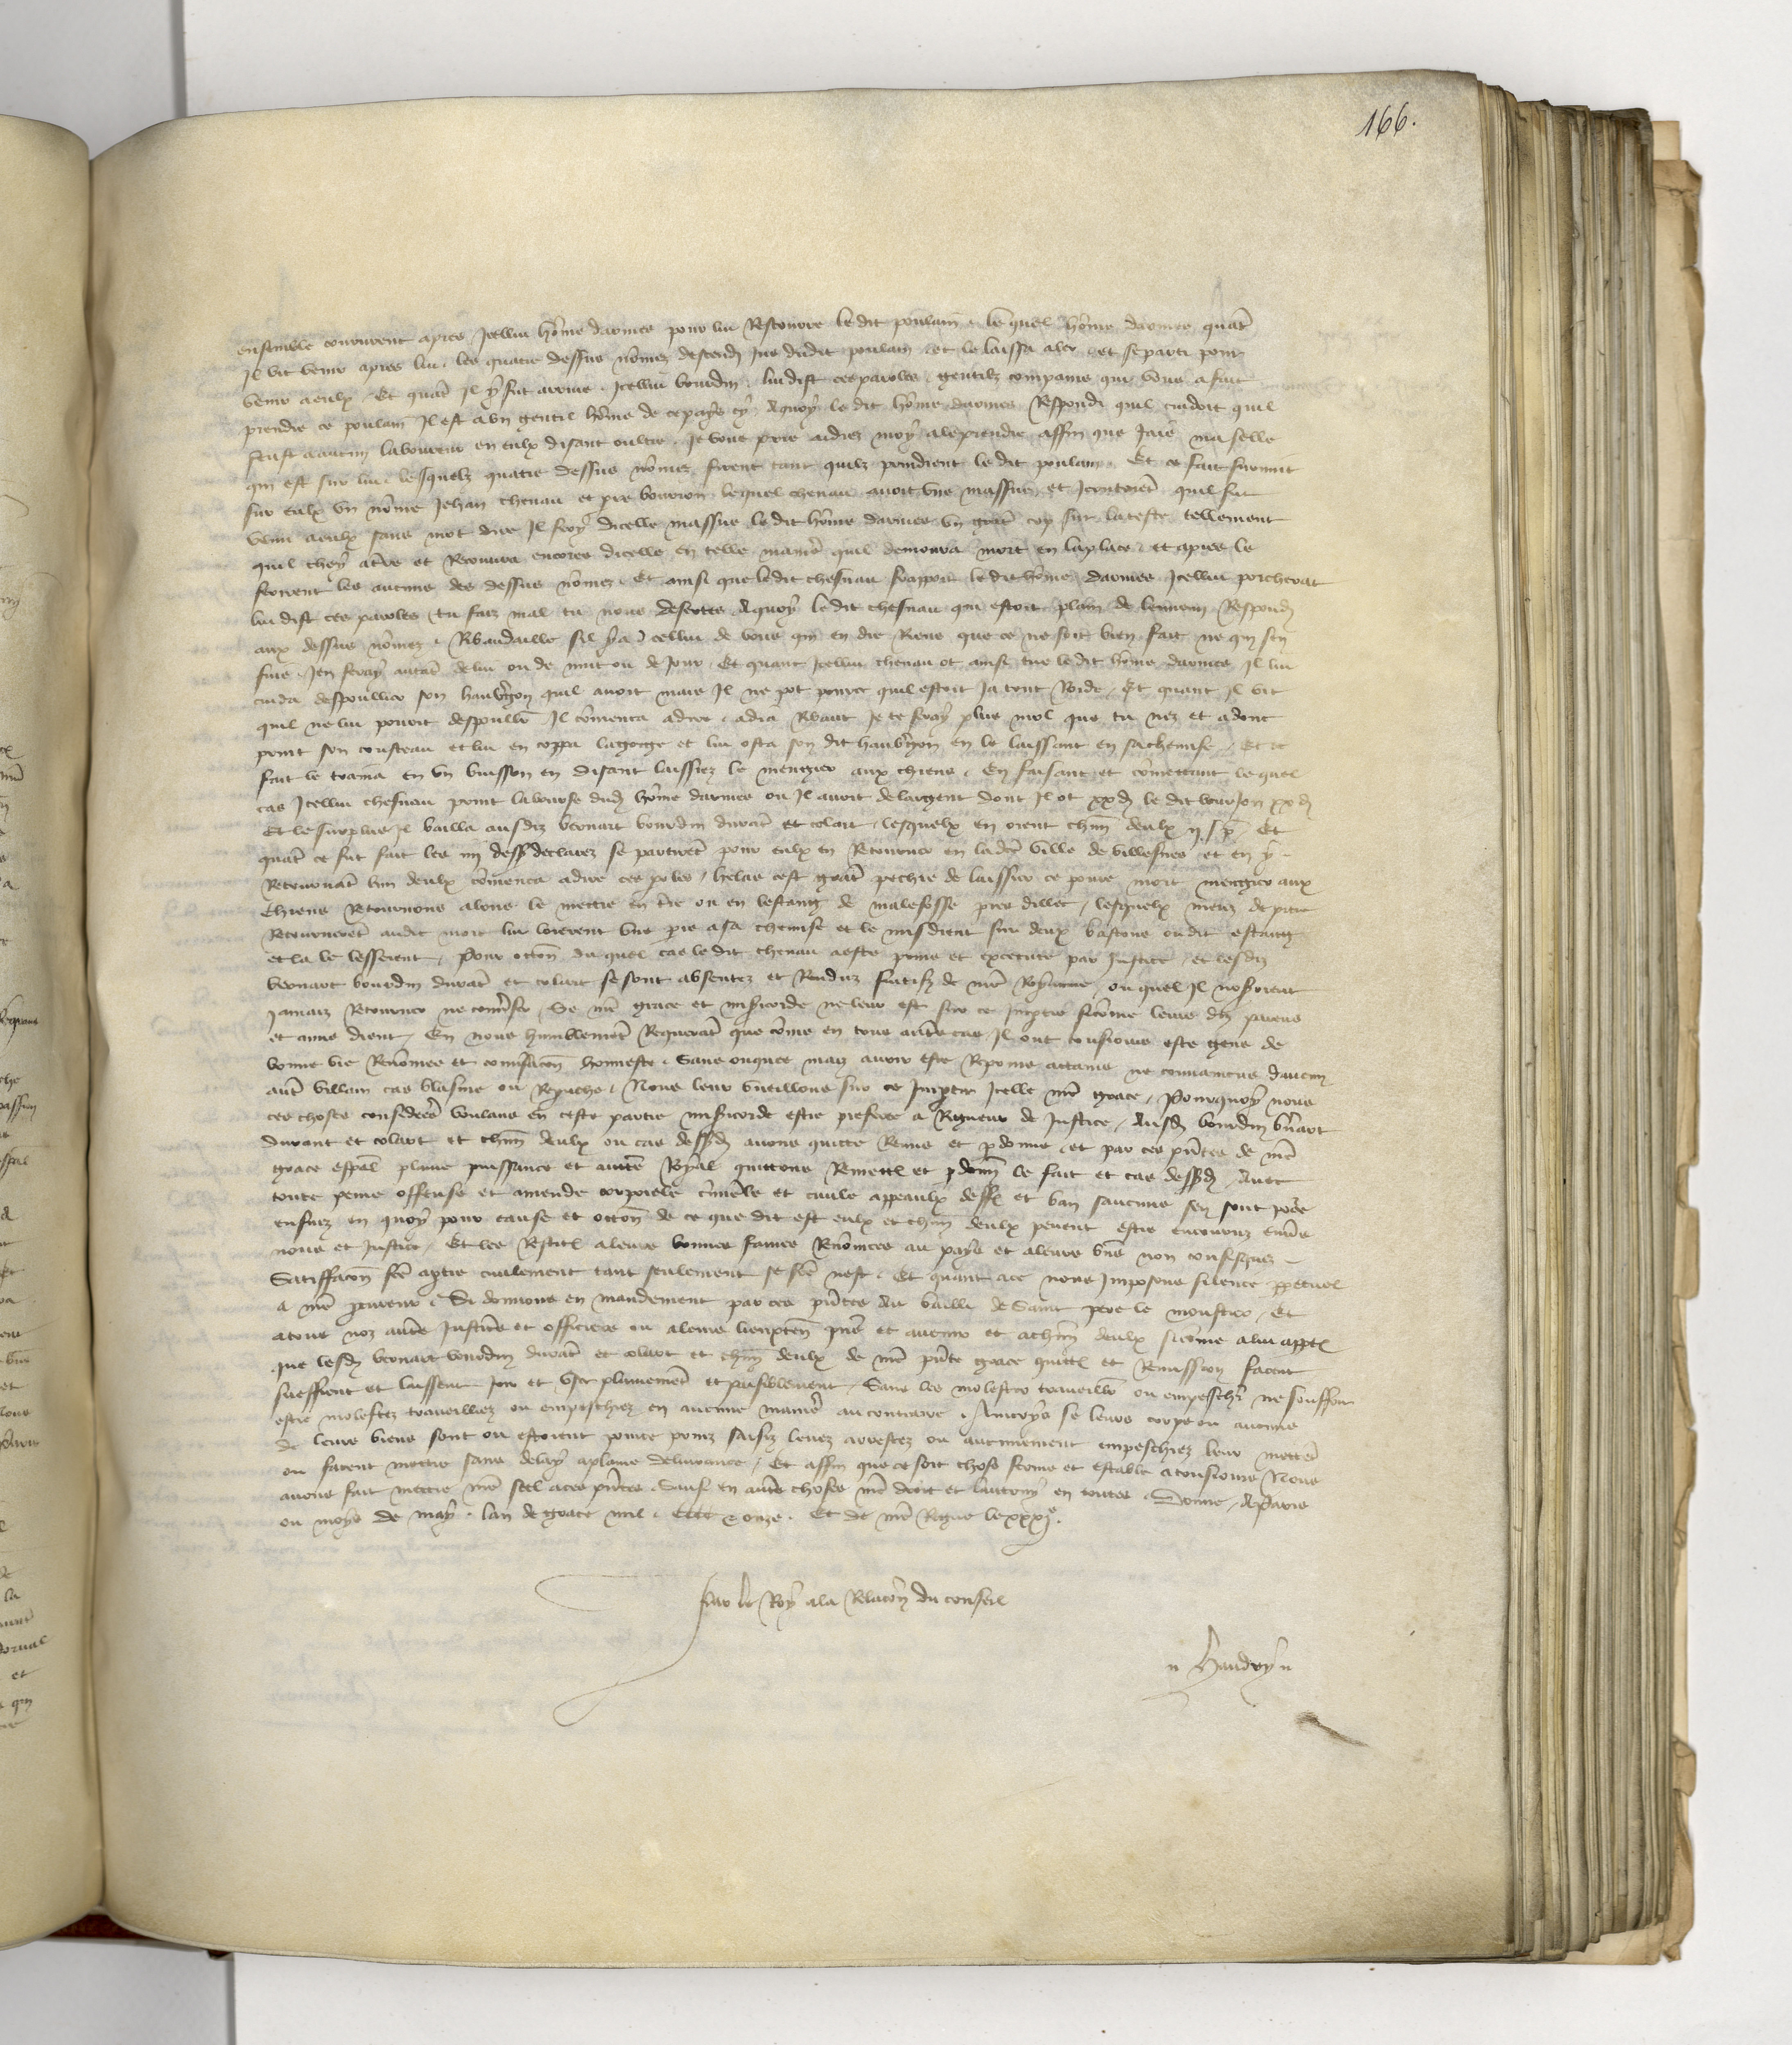 166.
ensemble coururent apres Icellui hõme darmes pour lui Rescourre le dit poulain . le quel hõme darmes quãt
Il vit venir apres lui . les quatre dessus nõmez descendi jus dudit poulain et le laissa aler et se parti pour
venir a eulx . Et quãt Il y fut arrive . Icellui bourdin lui dist ces paroles . gentilz compains qui vous a fait
prendre ce poulain Il est a un gentil hõme de ce pays cy . A quoy le dit hõme darmes Respondi quil cuidoit quil
feust a aucun laboureur en eulx disant oultre . Je vous prie aidiez moy a le prendre affin que Jaie ma selle
qui est sur lui . lesquelz quatre dessus nõmez firent tant quilz prindrent le dit poulain . Et ce fait survint
sur eulx un nõme Jehan chenau et pre bourion lequel chenau avoit une massue et Icontinẽt quil fut
venu a eulx sans mot dire Il fery dicelle massue le dit hõme darmes un grãt cop sur la teste tellement
quil chey a tre et Recouvra encores dicelle en telle maniẽ quil demoura mort en la place . et apres le
ferirent les aucuns des dessus nõmez . Et ainsi que ledit chesnau frappoit le dit hõme darmes Icellui porcherat
lui dist ces paroles tu faiz mal tu nous desertes A quoy le dit chesnau qui estoit plain de lennemi Respondi
aux dessus nõmez . Ribaudaille sil y a cellui de vous qui en die Riens que ce ne soit bien fait ne qui sen
fuie . Jen feray autãt de lui ou de nuit ou de Jour . Et quant Icellui chenau ot ainsi tue le dit hõme darmes Il lui
cuida despoullier son haubrjon quil avoit mais Il ne pot pource quil estoit Ja tout Roide . Et quant Il vit
quil ne lui povoit despoullr Il cõmenca a dire . a dia Ribaut Je te feray plus mol que tu nez et adonc
print son cousteau et lui en coppa la gorge et lui osta son dit haubrjon en le laissant en sa chemise . Et ce
fait le traina en un buisson en disant laissiez le mengier aux chiens . En faisant et cõmettant le quel
cas Icellui chesnau print la bourse dud hõme darmes ou Il avoit de largent dont Il ot xx d le dit bourjon xx d
Et le surplus Il bailla ausdiz bernart bourdin durãt et colart . lesquelx en orent chũn deulx ij s p . Et
quãt ce fut fait les iiij dess declarez se partirẽt pour eulx en Retourner en lad ville de villesnes et en y
Retournãt lun deulx cõmenca a dire ces poles . helas cest grãt pechie de laissier ce povre mort mengier aux
Chiens Retournons alons le mettre en tre ou en lestang de malefosse pres dillec . lesquelx meuz de pitie
Retournerẽt audit mort lui loierent une pre a sa chemise et le misdrent sur deux bastons oudit estang
et la le lesserent . Pour occõn du quel cas le dit chenau a este prins et execute par Justice . et lesdiz
bernart bourdin durãt et colart se sont absentez et Renduz fuitifz de nrẽ Royaume . ou quel Il noseroient
jamaiz Retourner ne convser . Se nrẽ grace et misicorde ne leur est sur ce Imptie sicõme leurs diz parens
et amis dient . En nous humblemẽt Requerãt que cõme en tous autres cas Il ont tousiours este gens de
bonne vie Renõmee et convsacõn honneste . Sans onques maiz avoir este Reprins attains ne convaincus daucun
autre villain cas blasme ou Reprouche . Nous leur vueillons sur ce Imptir Icelle nrẽ grace . Pourquoy nous
ces choses consideres voulans en ceste partie misicorde estre preferee a Rigueur de Justice . Ausd bourdin bnart
durant et colart et chũn deulx ou cas dessusd avons quitte Remis et pdonne . et par ces pntes de nrẽ
grace espal plaine puissance et aucte Royal quittons Remettons et pdonns le fait et cas dessusd . Avec
toute peine offense et amende corporele criminele et civile appeaulx deffaulx et ban saucuns sen sont pour ce
ensuiz en quoy pour cause et occõn de ce que dit est eulx et chũn deulx pevent estre encouruz envs
nous et Justice . Et les Restituons a leurs bonnes fames Renõmees au pays et a leurs biens non confisquez
Satisfacõn fte a ptie civilement tant seulement se fte nest . Et quant a ce nous Imposons silence ppetuel
a nrẽ procureur . Si donnons en mandement par ces pntes Au bailli de Saint pere le moustier . Et
a tous noz autres Justiciers et officiers ou a leurs lieuxten pns et avenir et a chũn deulx sicõme a lui apptendra
que lesd bernart bourdin durãt et colart et chũn deulx de nrẽ pnte grace quittance et Remission facent
sueffrent et laissent joir et user plainemẽt et paisiblement . Sans les molester traveillr ou empeschr ne souffrir
estre molestez traveilliez ou empeschiez en aucune maniẽ au contraire . Aincoys se leurs corps ou aucuns
de leurs biens sont ou estoient pource prins saisiz levez arrestez ou autrement empeschiez leur mettent
ou facent mettre sans delay a plaine delivrance . Et affin que ce soit chose ferme et estable a tousiours Nous
avons fait mettre nrẽ seel a ces pntes . Sauf en autres choses nrẽ droit et lautruy en toutes . Donne A Paris
ou moys de may . lan de grace mil . CCCC & onze . Et de nrẽ Regne le xxxje .
Par le Roy a la Relacõn du conseil
Haudry